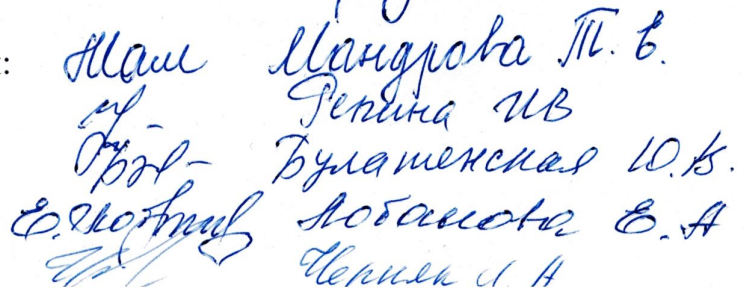 : Мандрова Т. Е.
Репина ИВ
Булатенская Ю.В.
Лобанова Е. А
Черняк Л А